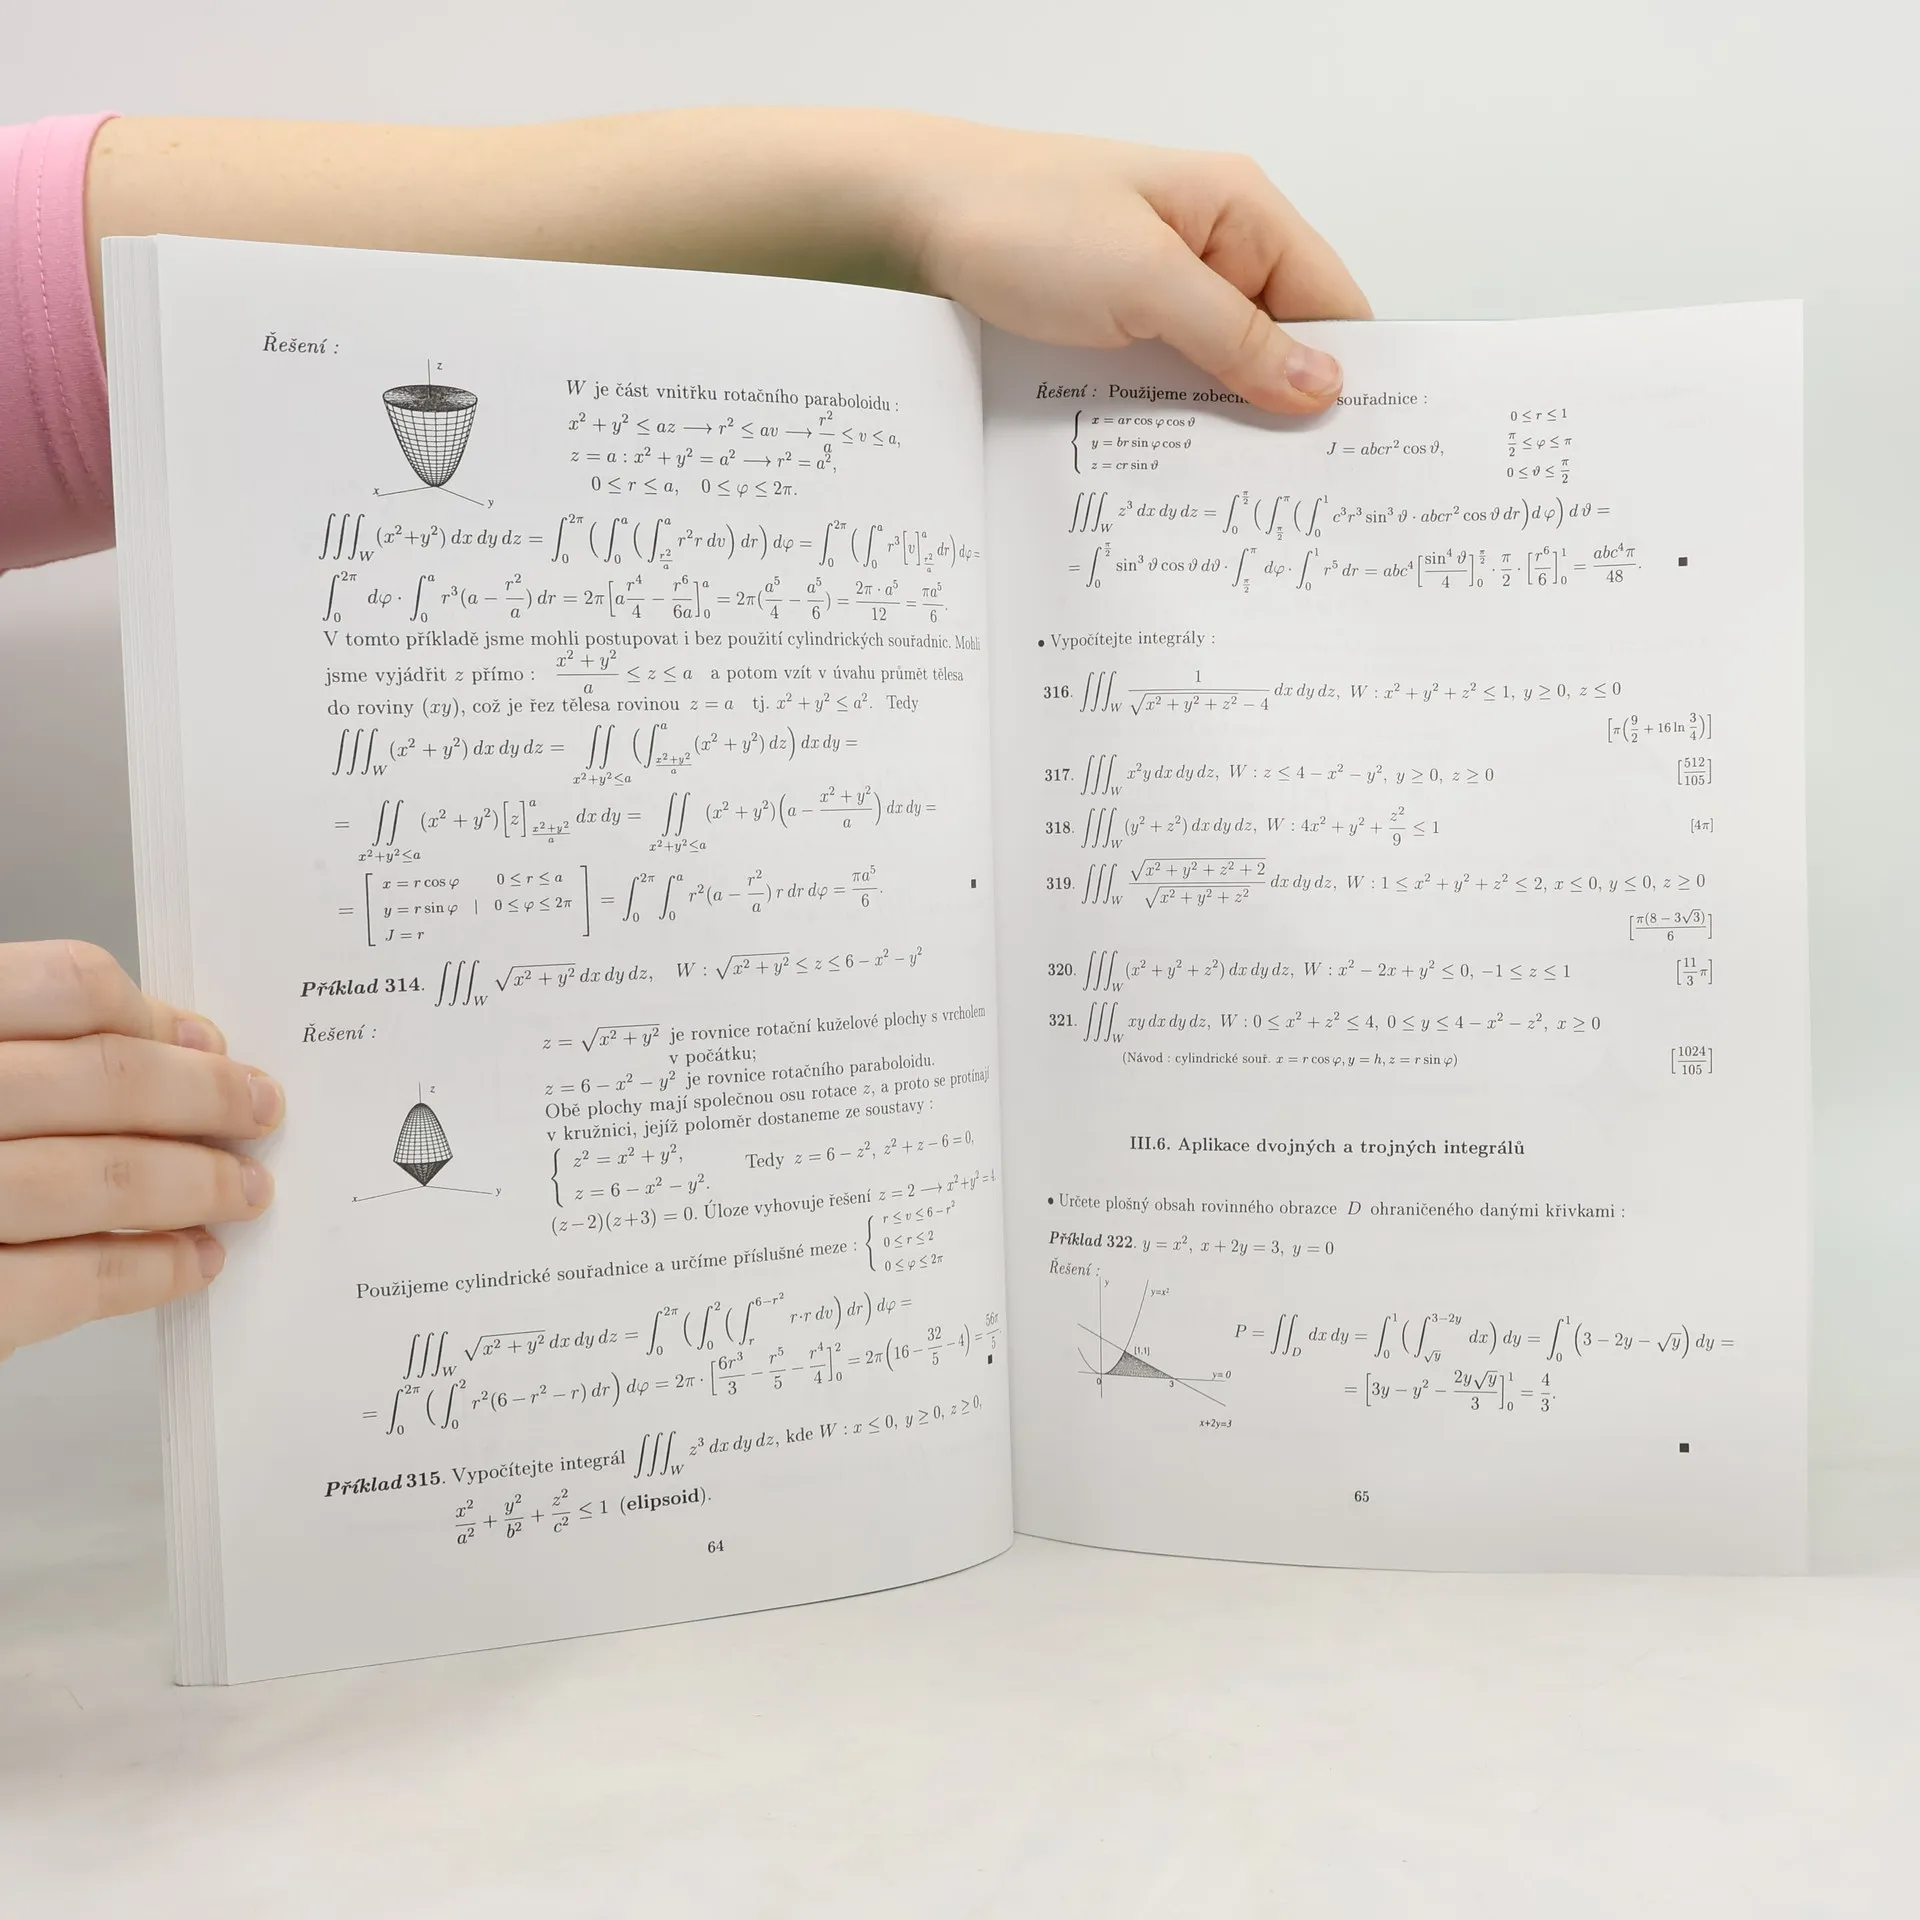 Řešení :
z
x
y
W je část vnitřku rotačního paraboloidu :
x² + y² ≤ az ⟶ r² ≤ av ⟶ r²/a ≤ v ≤ a,
z = a : x² + y² = a² ⟶ r² = a²,
0 ≤ r ≤ a, 0 ≤ φ ≤ 2π.
∭_W (x²+y²) dx dy dz = ∫_0^{2π} (∫_0^a (∫_{r²/a}^a r²r dv) dr) dφ = ∫_0^{2π} (∫_0^a r³[v]_{r²/a}^a dr) dφ =
∫_0^{2π} dφ · ∫_0^a r³(a − r²/a) dr = 2π[a r⁴/4 − r⁶/6a]_0^a = 2π(a⁵/4 − a⁵/6) = 2π · a⁵/12 = πa⁵/6.
V tomto příkladě jsme mohli postupovat i bez použití cylindrických souřadnic. Mohli
jsme vyjádřit z přímo : (x² + y²)/a ≤ z ≤ a a potom vzít v úvahu průmět tělesa
do roviny (xy), což je řez tělesa rovinou z = a tj. x² + y² ≤ a². Tedy
∭_W (x² + y²) dx dy dz = ∬_{x²+y²≤a} (∫_{(x²+y²)/a}^a (x² + y²) dz) dx dy =
= ∬_{x²+y²≤a} (x² + y²)[z]_{(x²+y²)/a}^a dx dy = ∬_{x²+y²≤a} (x² + y²)(a − (x² + y²)/a) dx dy =
= [x = r cos φ 0 ≤ r ≤ a
y = r sin φ | 0 ≤ φ ≤ 2π
J = r] = ∫_0^{2π} ∫_0^a r²(a − r²/a) r dr dφ = πa⁵/6. ∎
Příklad 314. ∭_W √(x² + y²) dx dy dz, W : √(x² + y²) ≤ z ≤ 6 − x² − y²
Řešení :
z
x
y
z = √(x² + y²) je rovnice rotační kuželové plochy s vrcholem
v počátku;
z = 6 − x² − y² je rovnice rotačního paraboloidu.
Obě plochy mají společnou osu rotace z, a proto se protínají
v kružnici, jejíž poloměr dostaneme ze soustavy :
{ z² = x² + y²,
z = 6 − x² − y². Tedy z = 6 − z², z² + z − 6 = 0,
(z−2)(z+3) = 0. Úloze vyhovuje řešení z = 2 ⟶ x²+y² = 4
Použijeme cylindrické souřadnice a určíme příslušné meze : { r ≤ v ≤ 6 − r²
0 ≤ r ≤ 2
0 ≤ φ ≤ 2π
∭_W √(x² + y²) dx dy dz = ∫_0^{2π} (∫_0^2 (∫_r^{6−r²} r·r dv) dr) dφ =
= ∫_0^{2π} (∫_0^2 r²(6 − r² − r) dr) dφ = 2π · [6r³/3 − r⁵/5 − r⁴/4]_0^2 = 2π(16 − 32/5 − 4) = 56π/5. ∎
Příklad 315. Vypočítejte integrál ∭_W z³ dx dy dz, kde W : x ≤ 0, y ≥ 0, z ≥ 0,
x²/a² + y²/b² + z²/c² ≤ 1 (elipsoid).
64
Řešení : Použijeme souřadnice :
{ x = ar cos φ cos ϑ
y = br sin φ cos ϑ
z = cr sin ϑ
J = abcr² cos ϑ,
0 ≤ r ≤ 1
π/2 ≤ φ ≤ π
0 ≤ ϑ ≤ π/2
∭_W z³ dx dy dz = ∫_0^{π/2} (∫_{π/2}^π (∫_0^1 c³r³ sin³ ϑ · abcr² cos ϑ dr) d φ) d ϑ =
= ∫_0^{π/2} sin³ ϑ cos ϑ dϑ · ∫_{π/2}^π dφ · ∫_0^1 r⁵ dr = abc⁴ [sin⁴ ϑ/4]_0^{π/2} · π/2 · [r⁶/6]_0^1 = abc⁴π/48. ∎
• Vypočítejte integrály :
316. ∭_W 1/(√(x² + y² + z²) − 4) dx dy dz, W : x² + y² + z² ≤ 1, y ≥ 0, z ≤ 0
[π(9/2 + 16 ln 3/4)]
317. ∭_W x²y dx dy dz, W : z ≤ 4 − x² − y², y ≥ 0, z ≥ 0 [512/105]
318. ∭_W (y² + z²) dx dy dz, W : 4x² + y² + z²/9 ≤ 1 [4π]
319. ∭_W √(x² + y² + z² + 2)/√(x² + y² + z²) dx dy dz, W : 1 ≤ x² + y² + z² ≤ 2, x ≤ 0, y ≤ 0, z ≥ 0
[π(8 − 3√3)/6]
320. ∭_W (x² + y² + z²) dx dy dz, W : x² − 2x + y² ≤ 0, −1 ≤ z ≤ 1 [11/3 π]
321. ∭_W xy dx dy dz, W : 0 ≤ x² + z² ≤ 4, 0 ≤ y ≤ 4 − x² − z², x ≥ 0
(Návod : cylindrické souř. x = r cos φ, y = h, z = r sin φ) [1024/105]
III.6. Aplikace dvojných a trojných integrálů
• Určete plošný obsah rovinného obrazce D ohraničeného danými křivkami :
Příklad 322. y = x², x + 2y = 3, y = 0
Řešení :
y
y=x²
[1,1]
0
3
y=0
x+2y=3
P = ∬_D dx dy = ∫_0^1 (∫_{√y}^{3−2y} dx) dy = ∫_0^1 (3 − 2y − √y) dy =
= [3y − y² − 2y√y/3]_0^1 = 4/3.
∎
65